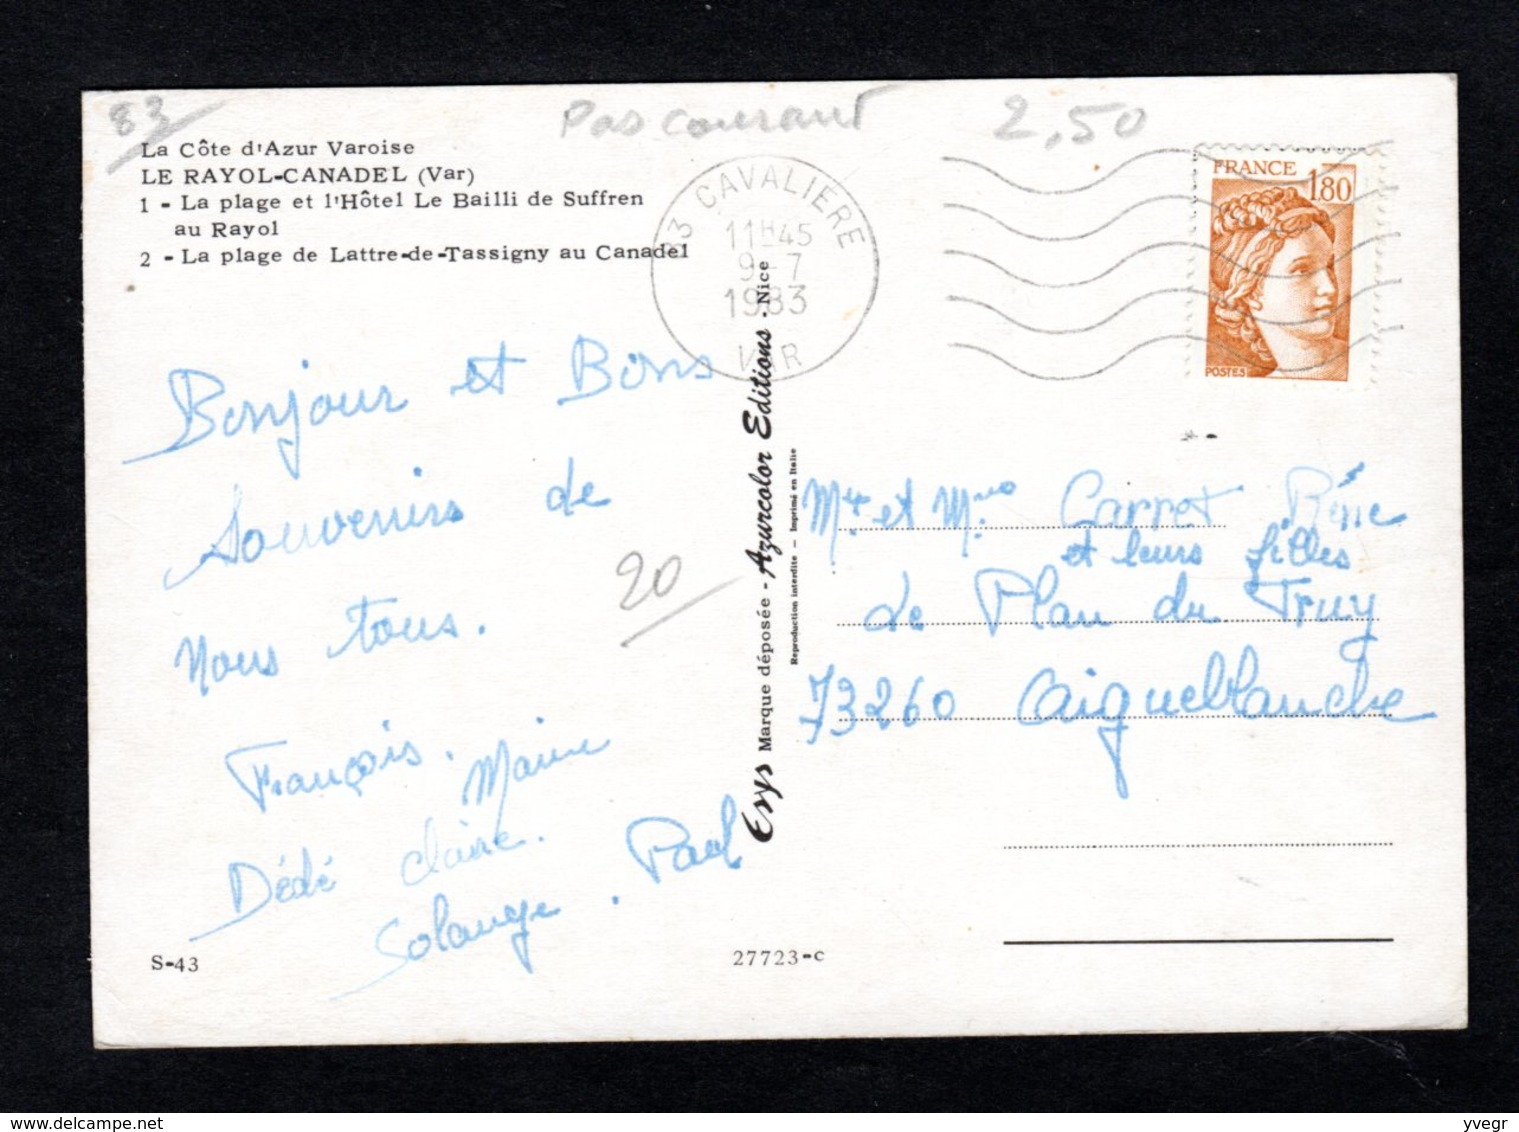 83
Pas courant
2,50
La Côte d'Azur Varoise
LE RAYOL-CANADEL (Var)
1 - La plage et l'Hôtel Le Bailli de Suffren
au Rayol
2 - La plage de Lattre-de-Tassigny au Canadel
83 CAVALIERE
11H45
9-7
1983
VAR
FRANCE
1,80
POSTES
Bonjour et Bons
Souvenirs de
nous tous.
20
François.
Dédé Claire.
Solange. Paul
Esys Marque déposée - Azurcolor Editions - Nice
Reproduction interdite - Imprimé en Italie
et Carret
et leurs filles
Le Plan du Truy
73260 Aigueblanche
S-43
27723-c
yvegr